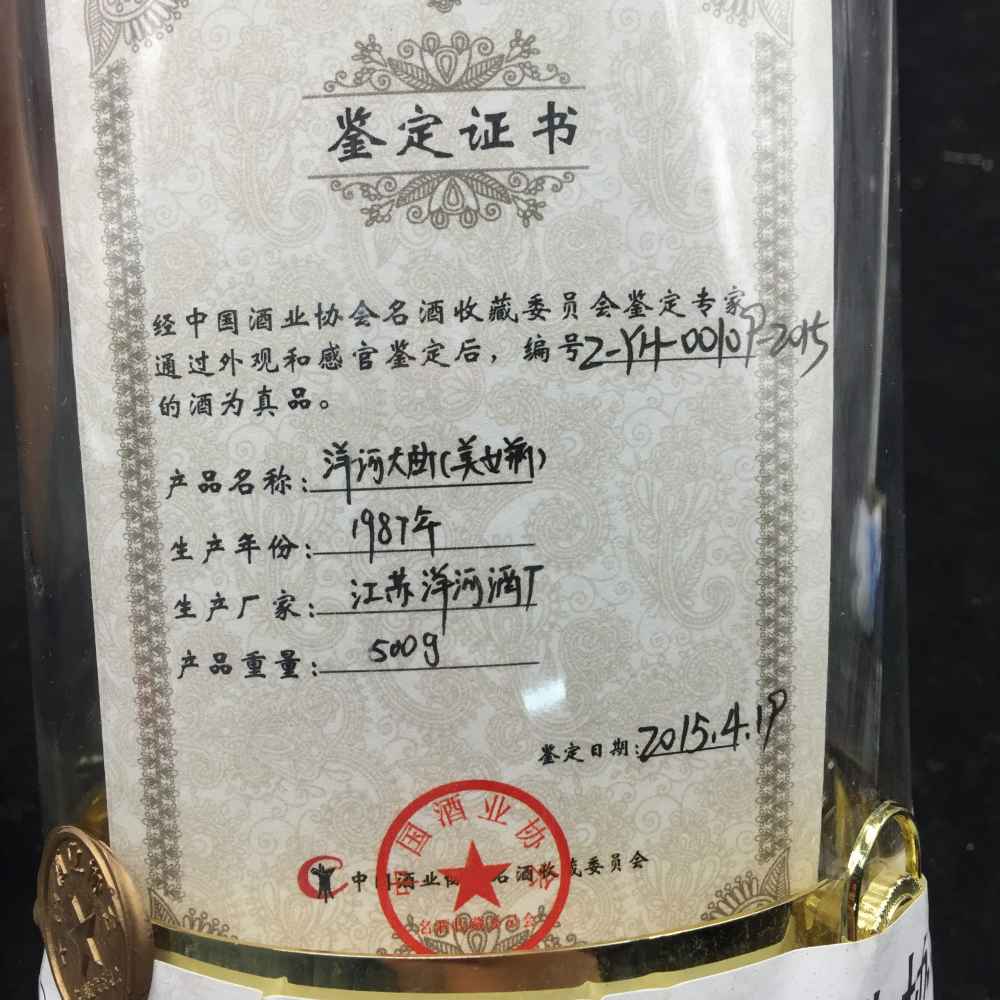 鉴定证书
经中国酒业协会名酒收藏委员会鉴定专家
通过外观和感官鉴定后，编号Z-YH-00109-2015
的酒为真品。
产品名称：洋河大曲(美女瓶)
生产年份：1987年
生产厂家：江苏洋河酒厂
产品重量：500g
鉴定日期：2015.4.19
中国酒业协会名酒收藏委员会
中国酒业协会
名酒收藏委员会